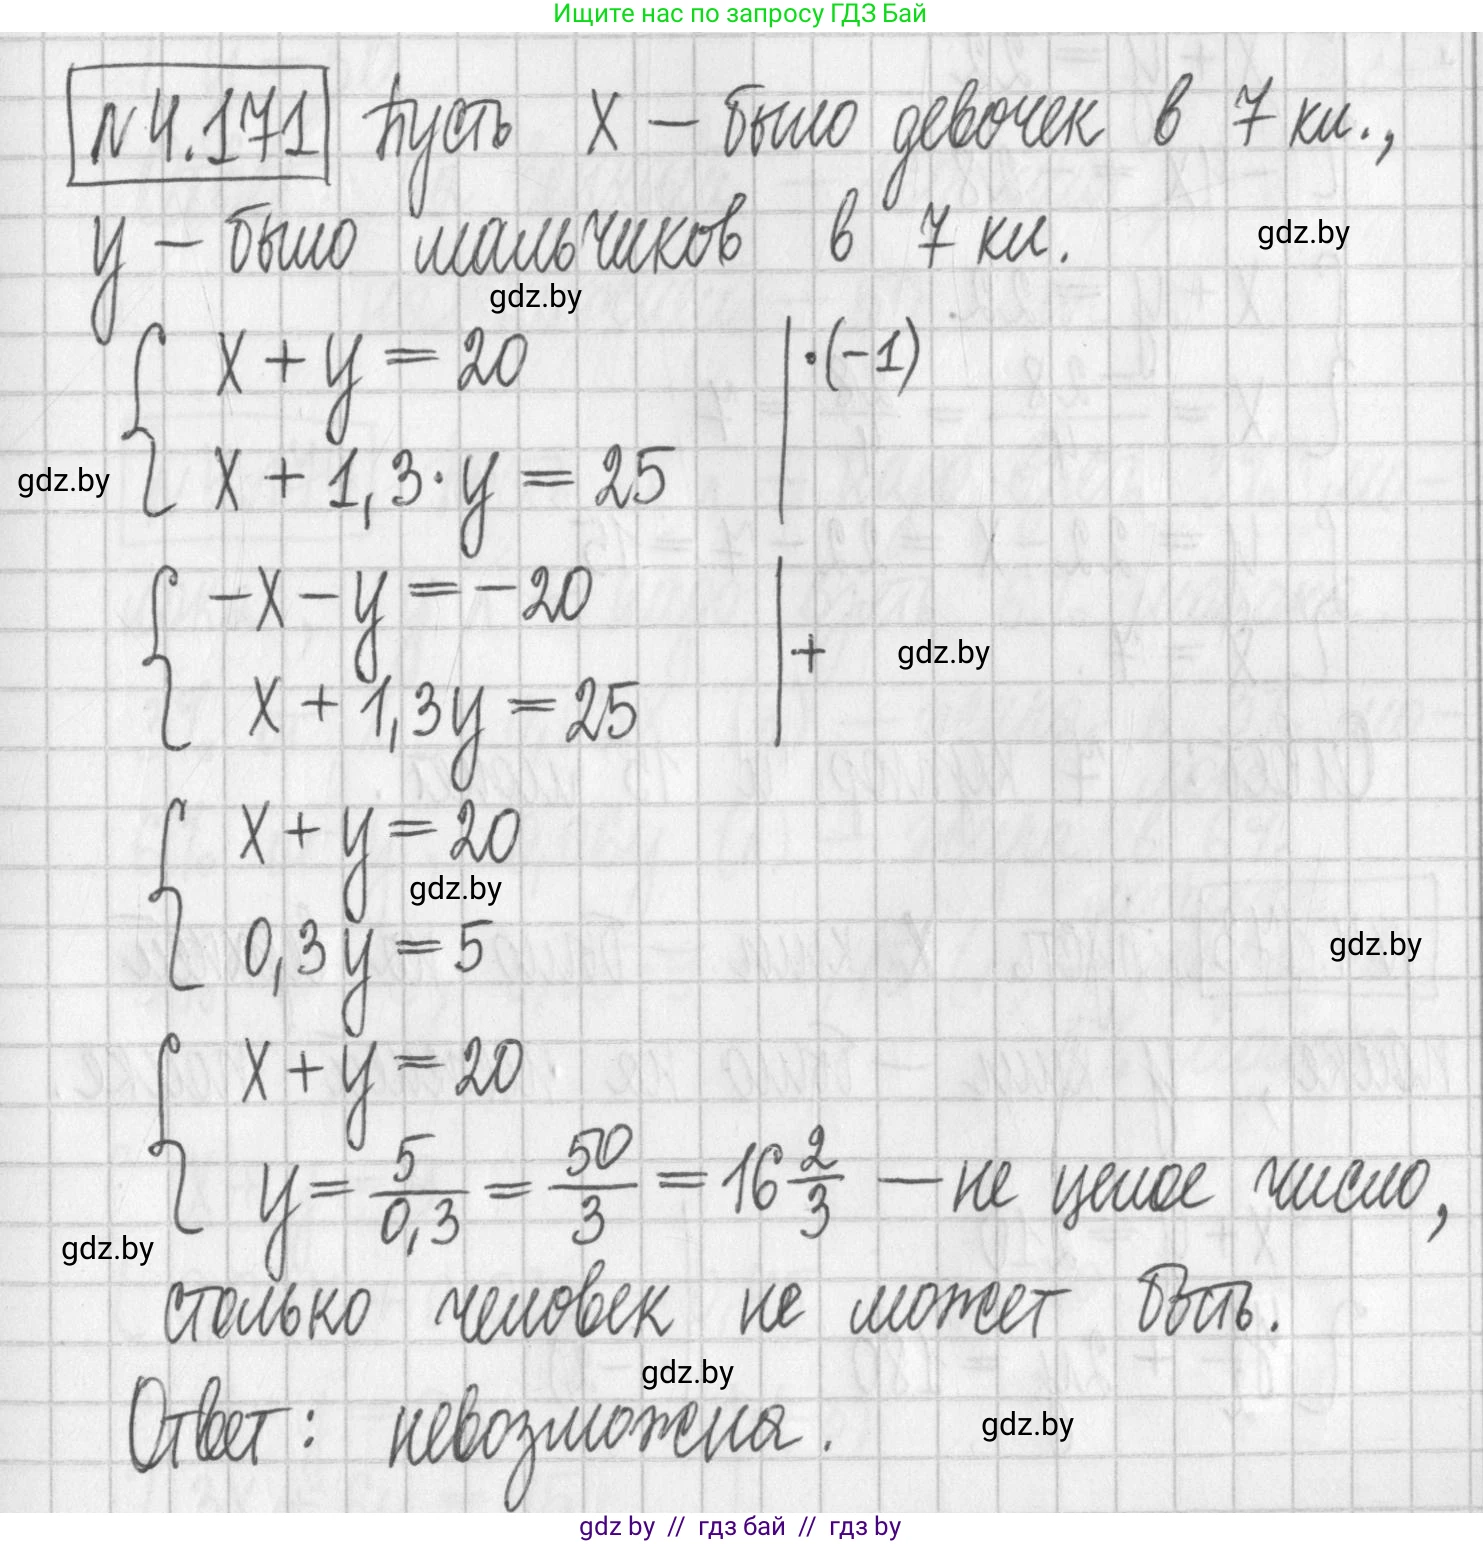 Ищите нас по запросу ГДЗ Бай
N 4.171 Пусть x – было девочек в 7 кл.,
y – было мальчиков в 7 кл.
gdz.by
gdz.by
x + y = 20 | · (-1)
x + 1,3 · y = 25
gdz.by
-x - y = -20
+
gdz.by
x + 1,3y = 25
x + y = 20
gdz.by
0,3y = 5
gdz.by
x + y = 20
y = 5/0,3 = 50/3 = 16 2/3 – не целое число,
gdz.by
столько человек не может быть.
gdz.by
Ответ: невозможна.
gdz.by
gdz by // гдз бай // гдз by